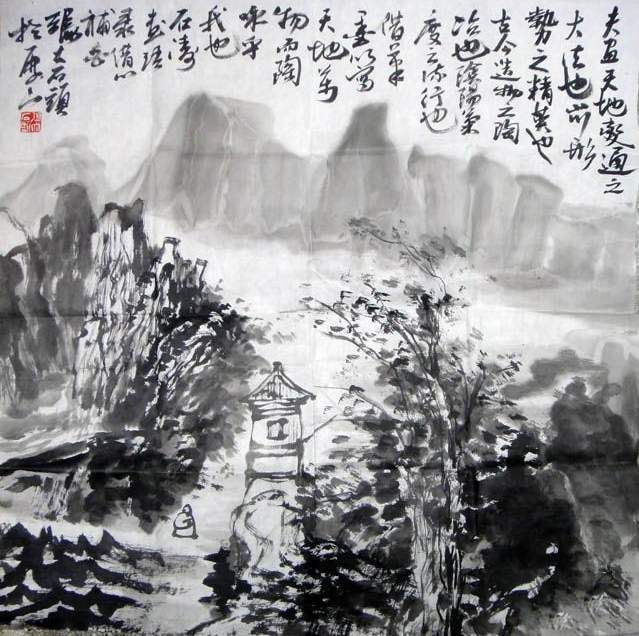 夫畫天地變通之
大法也山川形
勢之精英也
古今造物之陶
冶也陰陽氣
度之流行也
借筆
墨以寫
天地萬
物而陶
泳乎
我也
石濤
畫語
录借以
補白
張大石頭
於